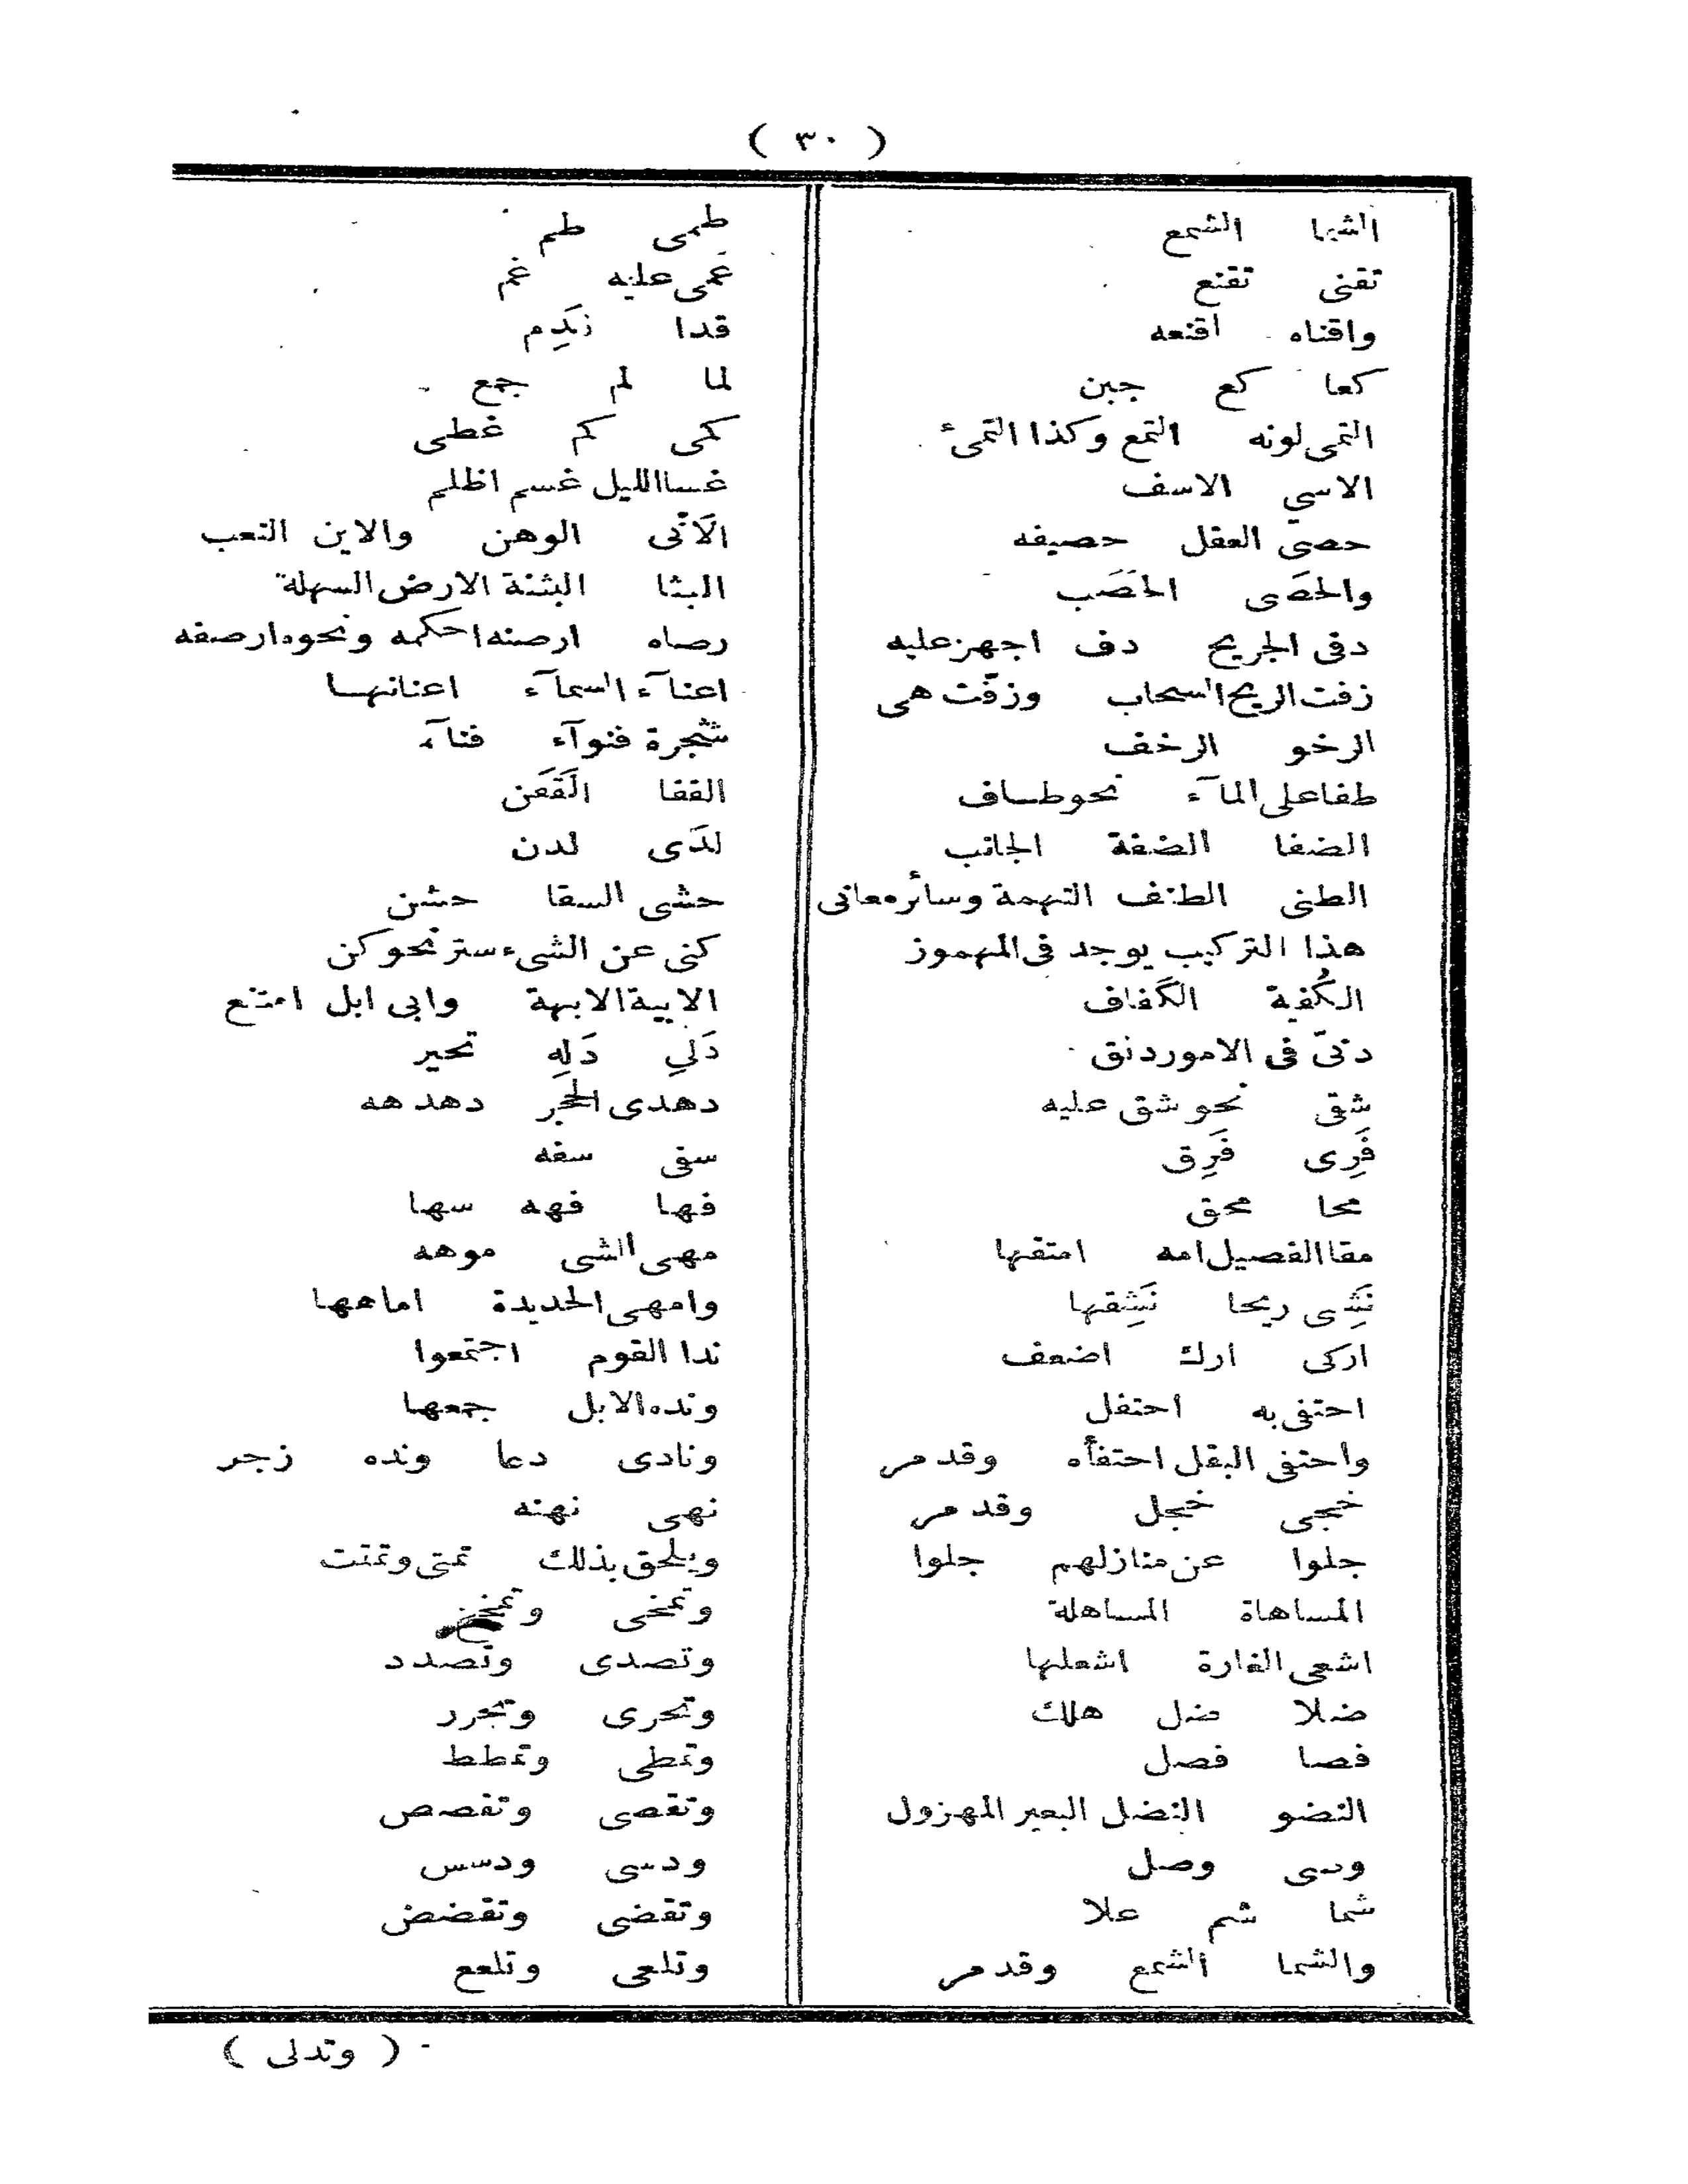 ( ٣٠ )
الشما الشمع
تقنى تقنع
واقناه اقنعه
كعا كع جبن
التمى لونه التمع وكذا التمىء
الاسي الاسف
حصىّ العقل حصيفه
والحصَى الحَصَب
دفى الجريح دف اجهز عليه
زفت الريح السحاب وزفّت هى
الرخو الرخف
طفا على المآء نحو طساف
الضفا الضفة الجانب
الطنى الطنف التهمة وسائر معانى
هذا التركيب يوجد فى المهموز
الكُفية الكَفاف
دنىّ فى الامور دنق
شقى نحو شق عليه
فَرِى فَرِق
محا محق
مقا الفصيل امه امتقها
نَشِى ريحا نَشِقها
اركى ارك اضعف
احتفى به احتفل
واحتفى البقل احتفأه وقد مر
خجى خجل وقد مر
جلوا عن منازلهم جلوا
المساهاة المساهلة
اشعى الغارة اشعلها
ضلا ضل هلك
فصا فصل
النضو النضل البعير المهزول
وصى وصل
شما شم علا
والشما الشمع وقد مر
طمى طم
غَمى عليه غم
قدا قَدِم
لما لم جمع
كمى كم غطى
غسا الليل غسم اظلم
الآنى الوهن والاين التعب
البثا البثنة الارض السهلة
رصاه ارصنه احكمه ونحوه ارصفه
اعنآء السمآء اعنانها
شجرة فنوآء فنآء
القفا القَفَن
لدَى لدن
حشى السقا حشن
كنى عن الشىء ستر نحو كن
الابية الابهة وابى ابل امتنع
دَلِي دَلِه تحير
دهدى الحجر دهدهه
سفى سفه
فها فهه سها
مهى الشى موهه
وامهى الحديدة اماهها
ندا القوم اجتمعوا
ونده الابل جمعها
ونادى دعا ونده زجر
نهى نهنه
ويلحق بذلك تمتى وتمتت
وتمخى وتمخخ
وتصدى وتصدد
وتحرى وتحرر
وتمطى وتمطط
وتقصى وتقصص
ودسى ودسس
وتقضى وتقضض
وتلعى وتلعع
( وتدلى )